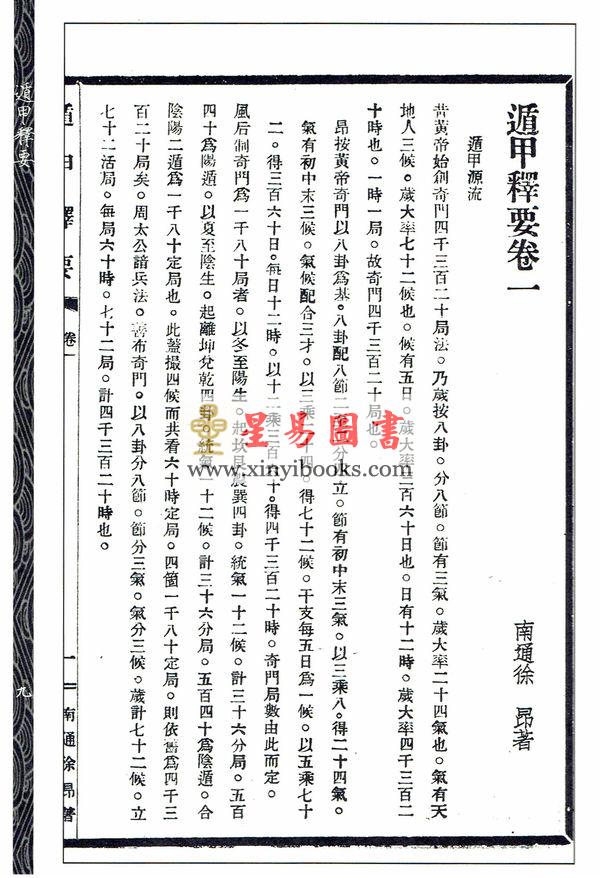 遁甲釋要卷一
南通徐昂著
遁甲源流
昔黃帝始創奇門四千三百二十局法。乃歲按八卦。分八節。節有三氣。歲大率二十四氣也。氣有天
地人三候。歲大率七十二候也。候有五日。歲大率三百六十日也。日有十二時。歲大率四千三百二
十時也。一時一局。故奇門四千三百二十局也。
昂按黃帝奇門以八卦爲基。八卦配八節二至二分四立。節有初中末三氣。以三乘八。得二十四氣。
氣有初中末三候。氣候配合三才。以三乘二十四。得七十二候。干支每五日爲一候。以五乘七十
二。得三百六十日。每日十二時。以十二乘三百六十。得四千三百二十時。奇門局數由此而定。
風后制奇門爲一千八十局者。以冬至陽生。起坎艮震巽四卦。統氣一十二候。計三十六分局。五百
四十爲陽遁。以夏至陰生。起離坤兌乾四卦。統氣一十二候。計三十六分局。五百四十爲陰遁。合
陰陽二遁爲一千八十定局也。此蓋撮四候而共看六十時定局。四箇一千八十定局。則依舊爲四千三
百二十局矣。周太公諳兵法。善布奇門。以八卦分八節。節分三氣。氣分三候。歲計七十二候。立
七十二活局。每局六十時。七十二局。計四千三百二十時也。
遁甲釋要
卷一
一
南通徐昂著
遁甲釋要
九
星易圖書
www.xinyibooks.com